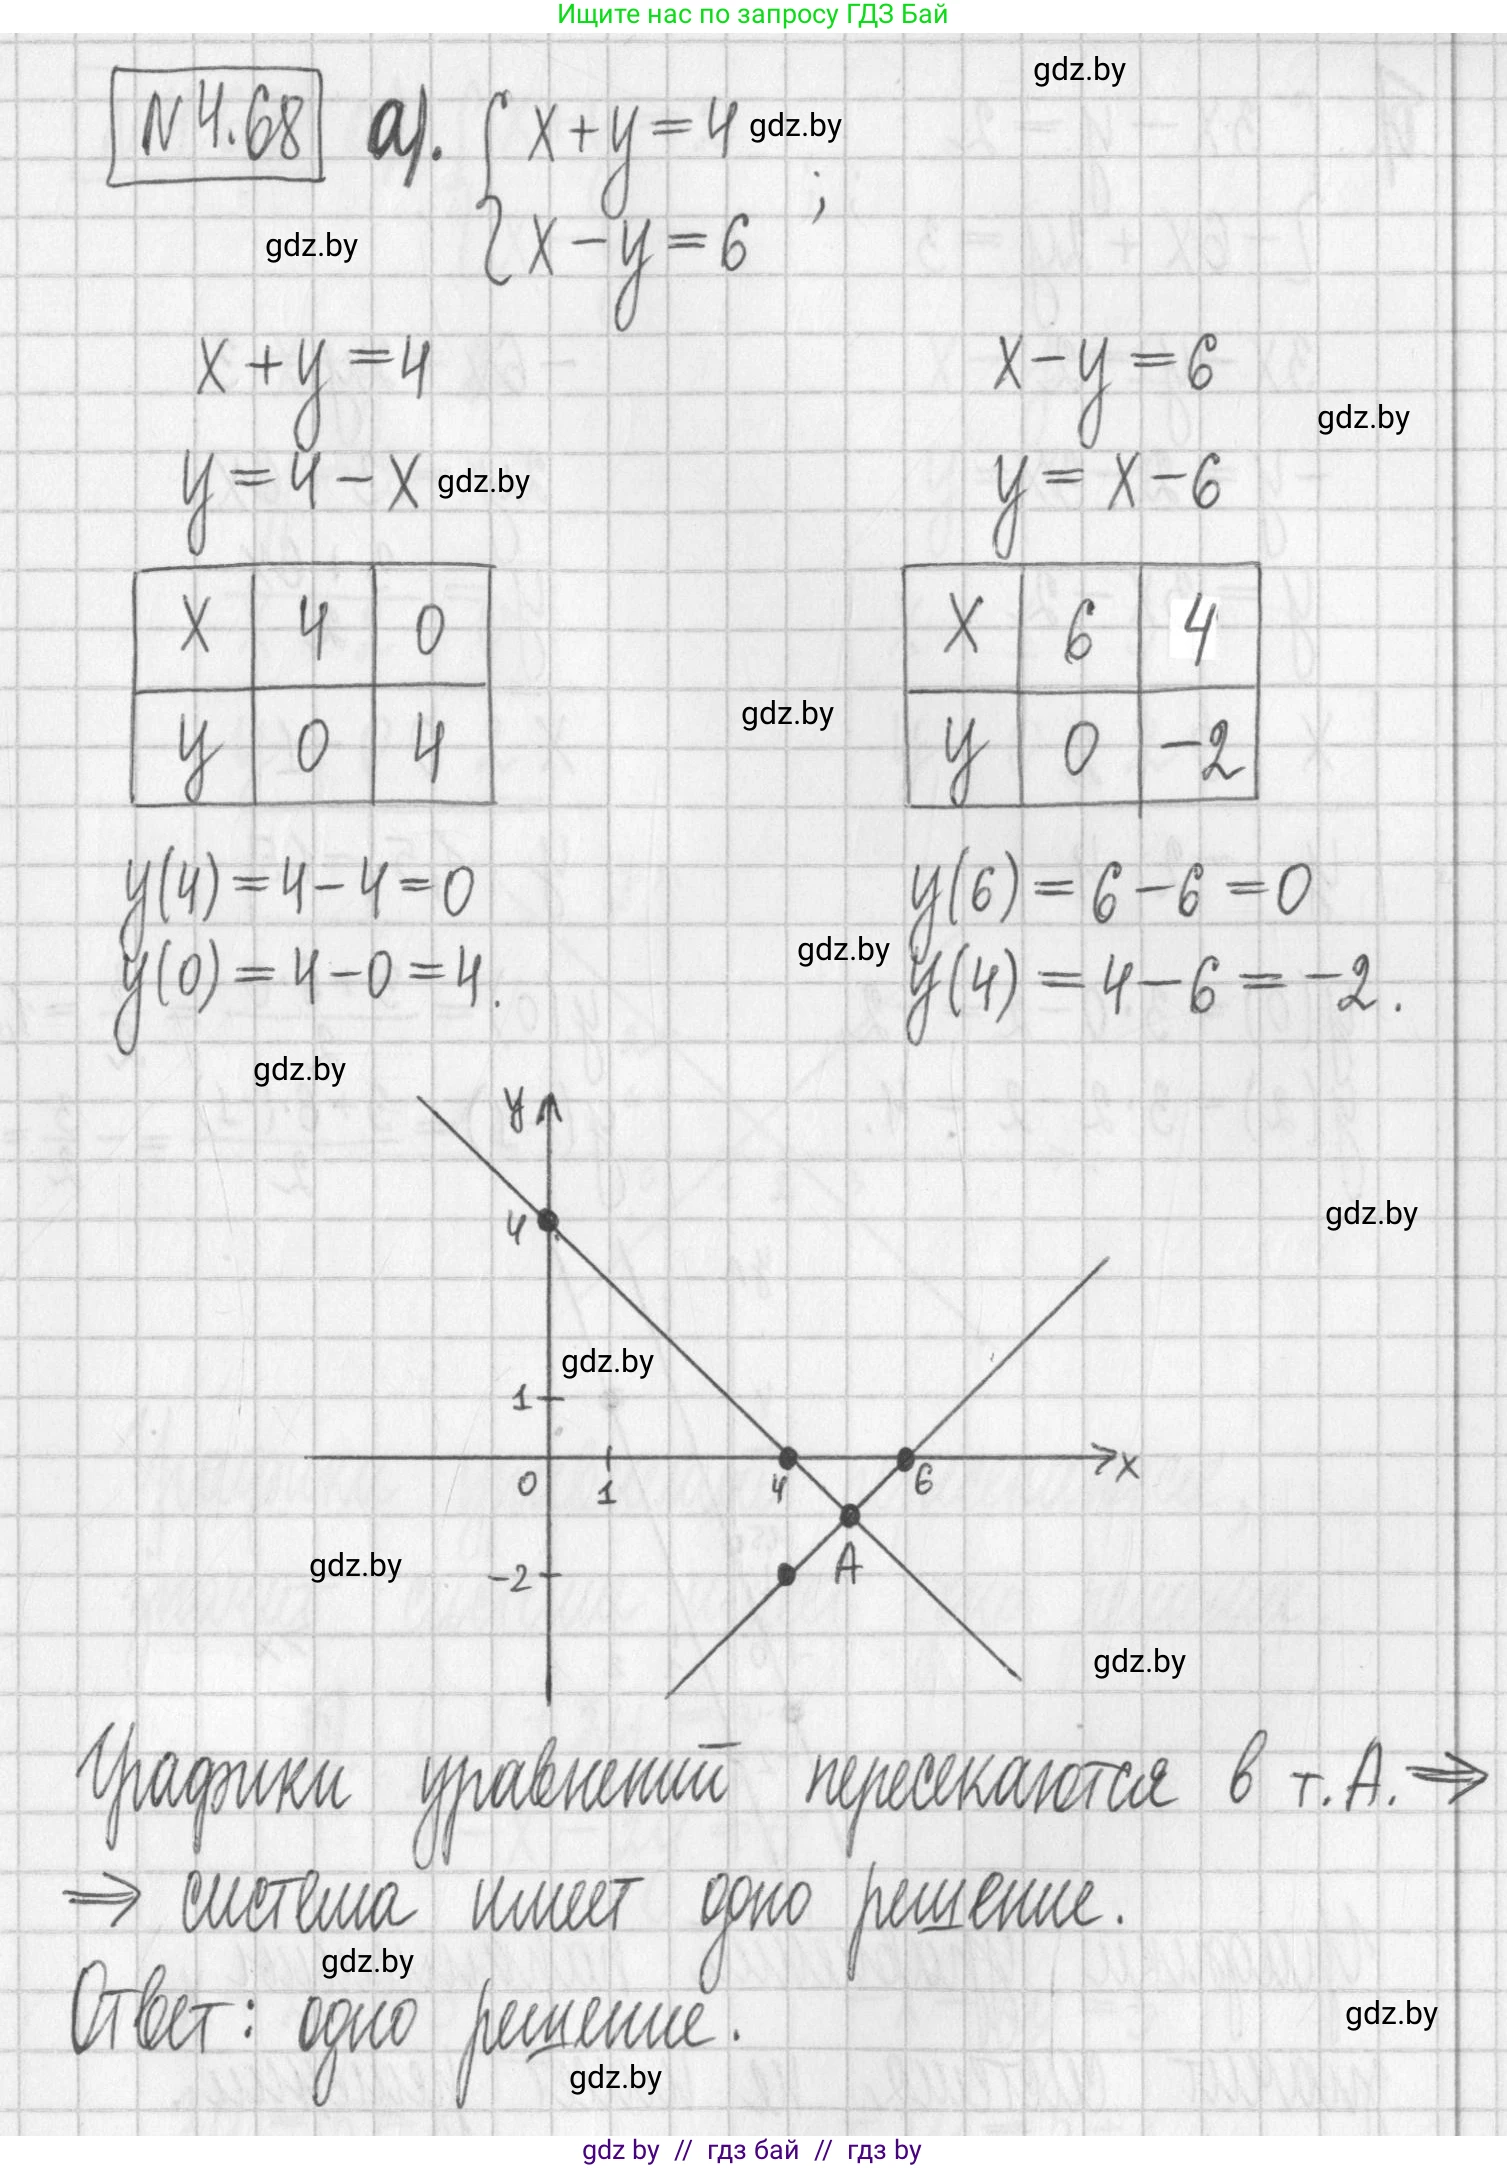 Ищите нас по запросу ГДЗ Бай
gdz.by
№4.68 а). { x+y=4 gdz.by
x-y=6 ;
gdz.by
x+y=4 x-y=6
gdz.by
y=4-x gdz.by y=x-6
x 4 0 x 6 4
gdz.by
y 0 4 y 0 -2
y(4)=4-4=0 y(6)=6-6=0
gdz.by
y(0)=4-0=4. y(4)=4-6=-2.
gdz.by
y
4
gdz.by
gdz.by
1
0 1 4 6 x
gdz.by
-2 A
gdz.by
Графики уравнений пересекаются в т.А. ⇒
⇒ система имеет одно решение.
gdz.by
Ответ: одно решение.
gdz.by
gdz.by
gdz by // гдз бай // гдз by